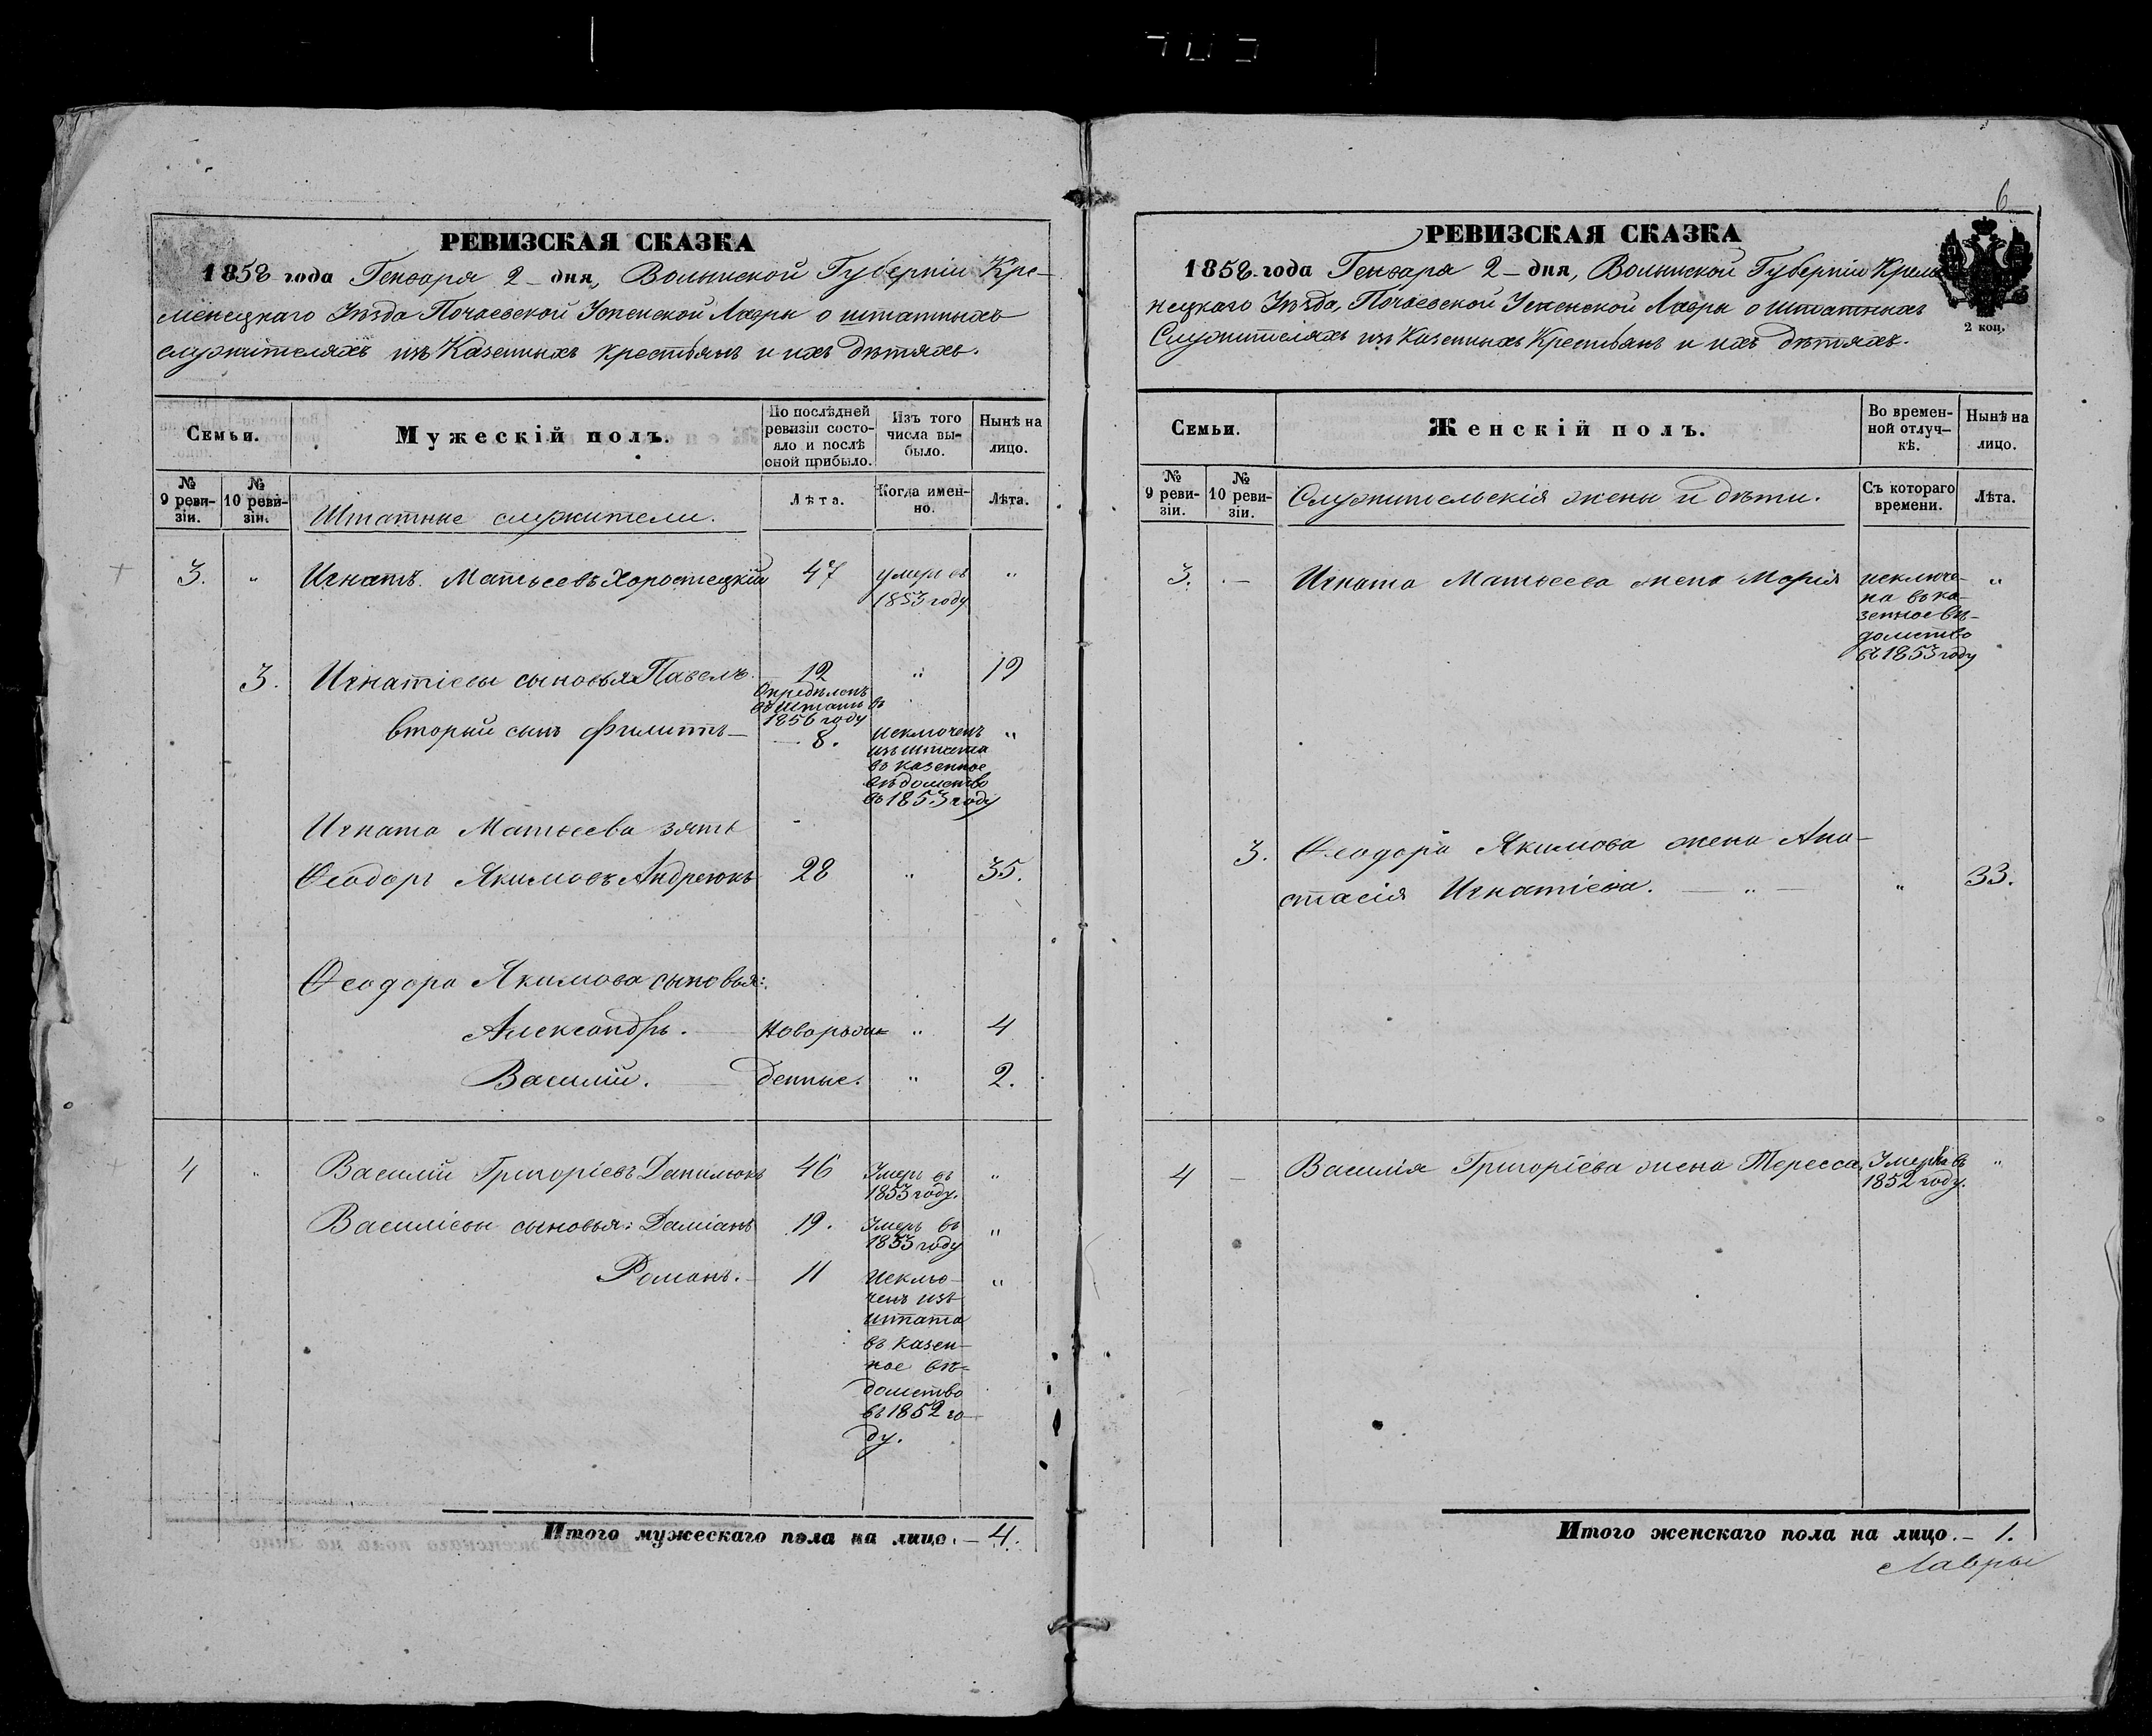 РЕВИЗСКАЯ СКАЗКА
1858 года Генваря 2 – дня, Волынской Губерніи Кре-
менецкаго Уѣзда Почаевской Успенской Лавры о штатныхъ
служителяхъ изъ Казенныхъ крестьянъ и ихъ дѣтяхъ.
Семьи.
Мужескій полъ.
По послѣдней
ревизіи состо-
яло и послѣ
оной прибыло.
Изъ того
числа вы-
было.
Нынѣ на
лицо.
№
9 реви-
зіи.
№
10 реви-
зіи.
Штатные служители.
Лѣта.
Когда имен-
но.
Лѣта.
3. " Игнатъ Матвеевъ Хоростецкій 47 умеръ въ "
1853 году
3. Игнатіевы сыновья Павелъ 12 " 19
Опредѣленъ
въ штатъ въ
1856 году
вторый сынъ Филиппъ – 8. исключенъ "
изъ штата
въ казенное
вѣдомство
въ 1853 году
Игната Матвеева зять
Ѳеодоръ Якимовъ Андреюкъ 28 " 35.
Ѳеодора Якимова сыновья:
Александръ. Новорож= " 4
Василій. денные. " 2.
4 " Василій Григоріевъ Данилюкъ 46 Умеръ въ "
1853 году.
Василіевы сыновья: Даміанъ 19. Умеръ въ "
1853 году
Романъ. – 11 Исклю- "
ченъ изъ
штата
въ казен-
ное вѣ-
домство
въ 1852 го-
ду.
Итого мужескаго пола на лицо. – 4.
6
РЕВИЗСКАЯ СКАЗКА
1858 года Генваря 2 – дня, Волынской Губерніи Креме
нецкаго Уѣзда, Почаевской Успенской Лавры о Штатныхъ
Служителяхъ изъ Казенныхъ Крестьянъ и ихъ дѣтяхъ.
2 коп.
Семьи.
Женскій полъ.
Во времен-
ной отлуч-
кѣ.
Нынѣ на
лицо.
№
9 реви-
зіи.
№
10 реви-
зіи.
Служительскія жены и дѣти.
Съ котораго
времени.
Лѣта.
3. – Игната Матвеева жена Марія исключе- "
на въ ка-
зенное вѣ-
домство
въ 1853 году
3. Ѳеодора Якимова жена Ана-
стасія Игнатіева. – " – " 33.
4 – Василія Григоріева жена Тересса Умерла въ "
1852 году.
Итого женскаго пола на лицо. – 1.
Лавры